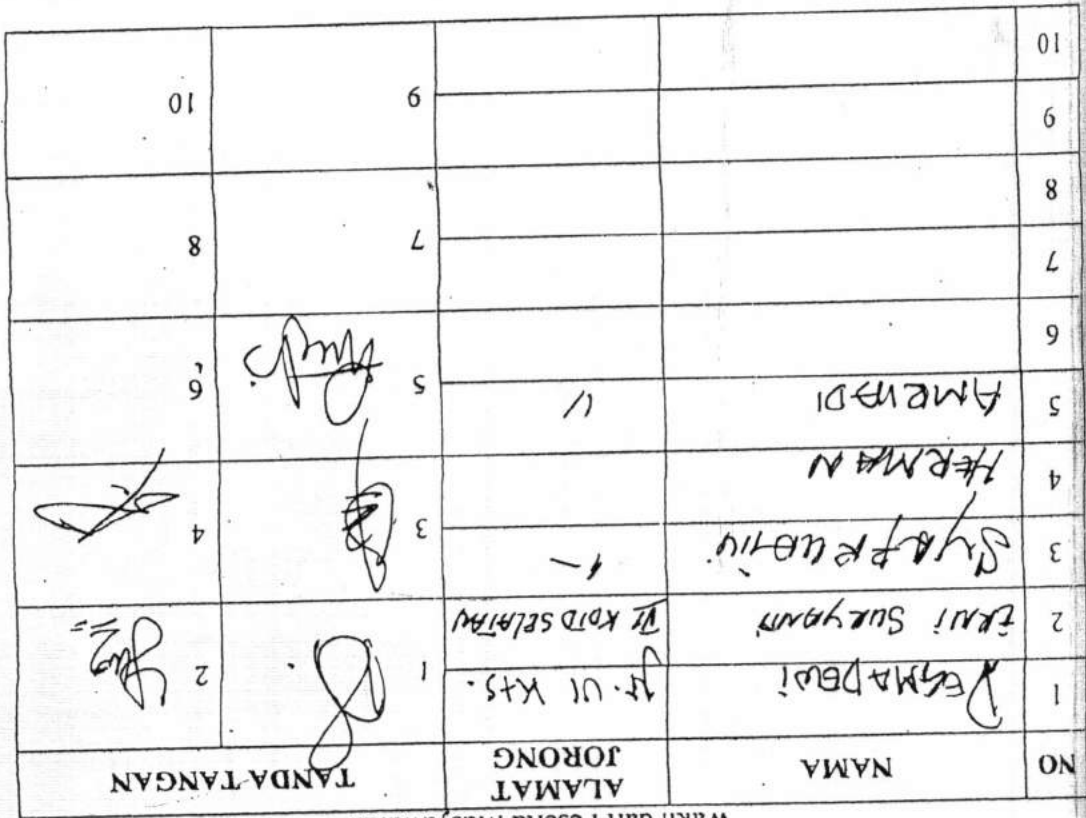 Wakil dari Peserta
NO NAMA ALAMAT JORONG TANDA TANGAN
1 DESMADEWI Jr. VI Kts. 1
2 ERNI SURYANTI VI KOTO SELATAN 2
3 SYAFRUDIN 3
4 HERMAN 4
5 AMRYADI 5
6 6
7 7
8 8
9 9
10 10